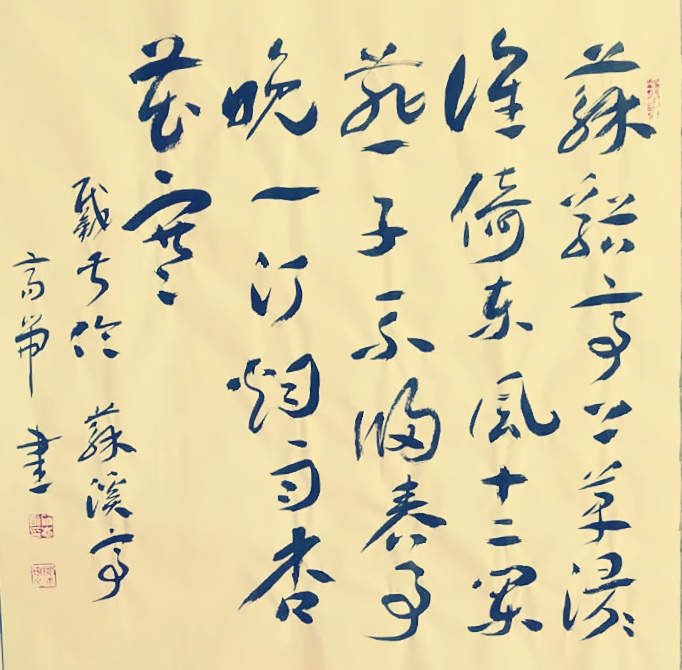 蘇谿亭上草漫々
誰倚東風十二闌
燕子不歸春事
晚一汀烟雨杏
花寒
戴叔倫 蘇溪亭
高 書